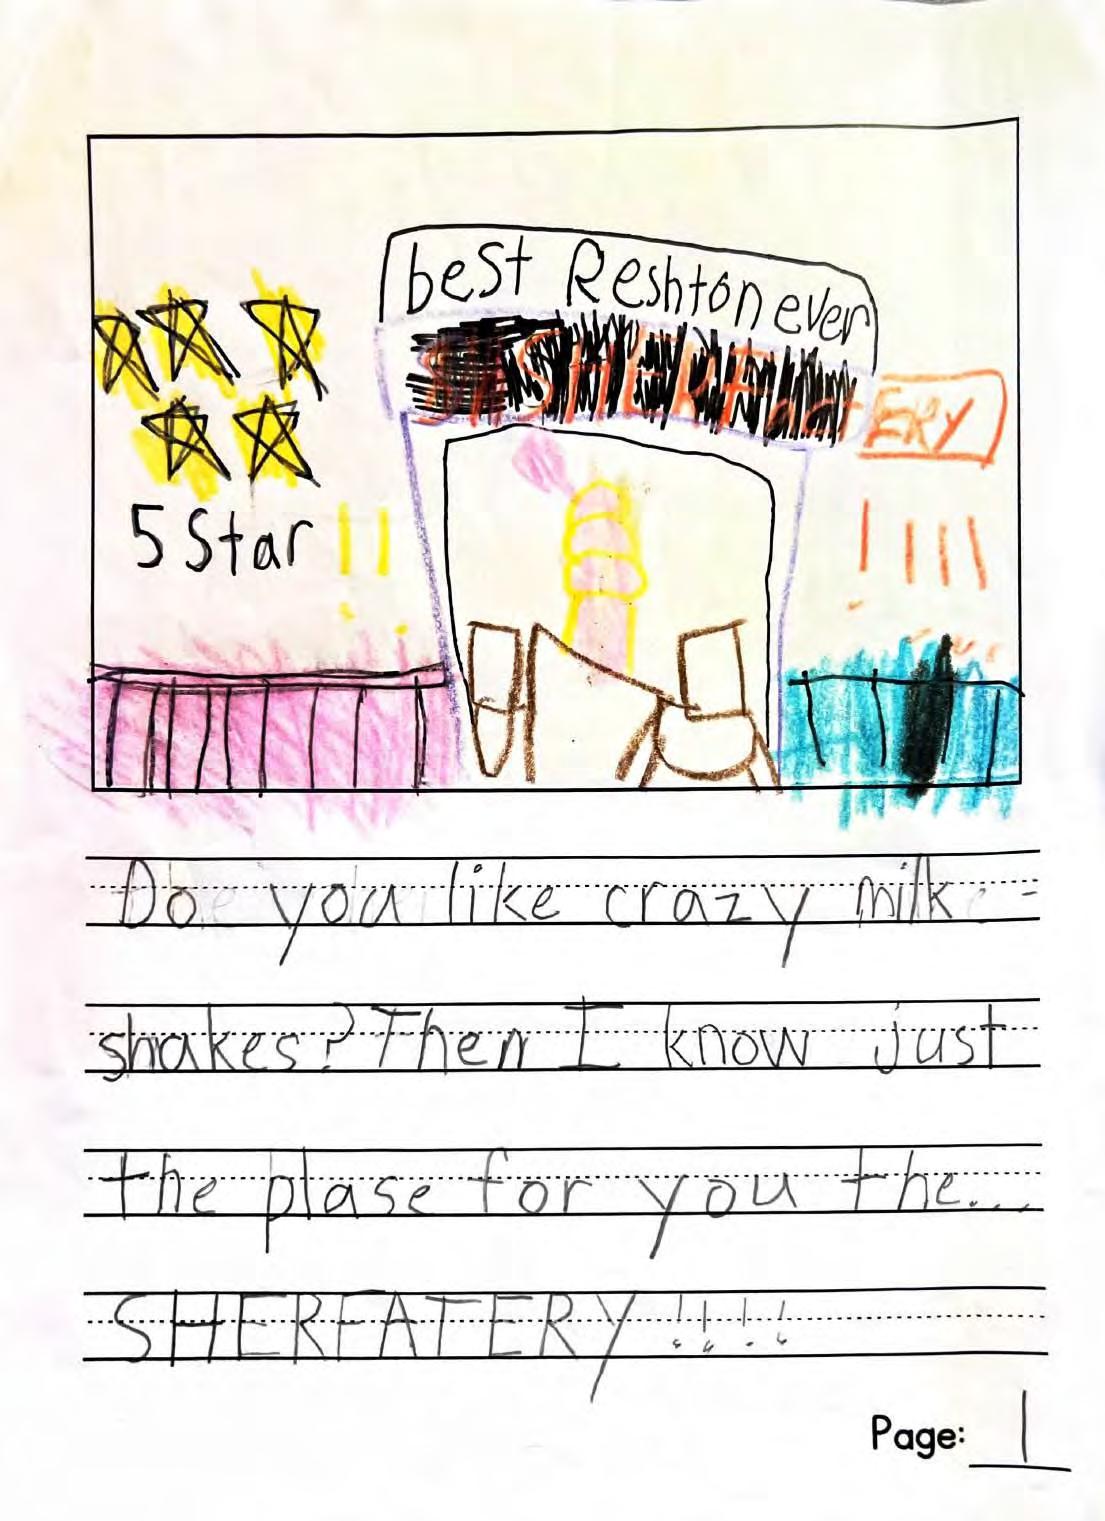 best Reshtonever
SHERFact ERY
5 Star !!
!!!!
Do you like crazy milk-
shakes? Then I know just
the plase for you the...
SHERFATERY!!!!
Page: 1